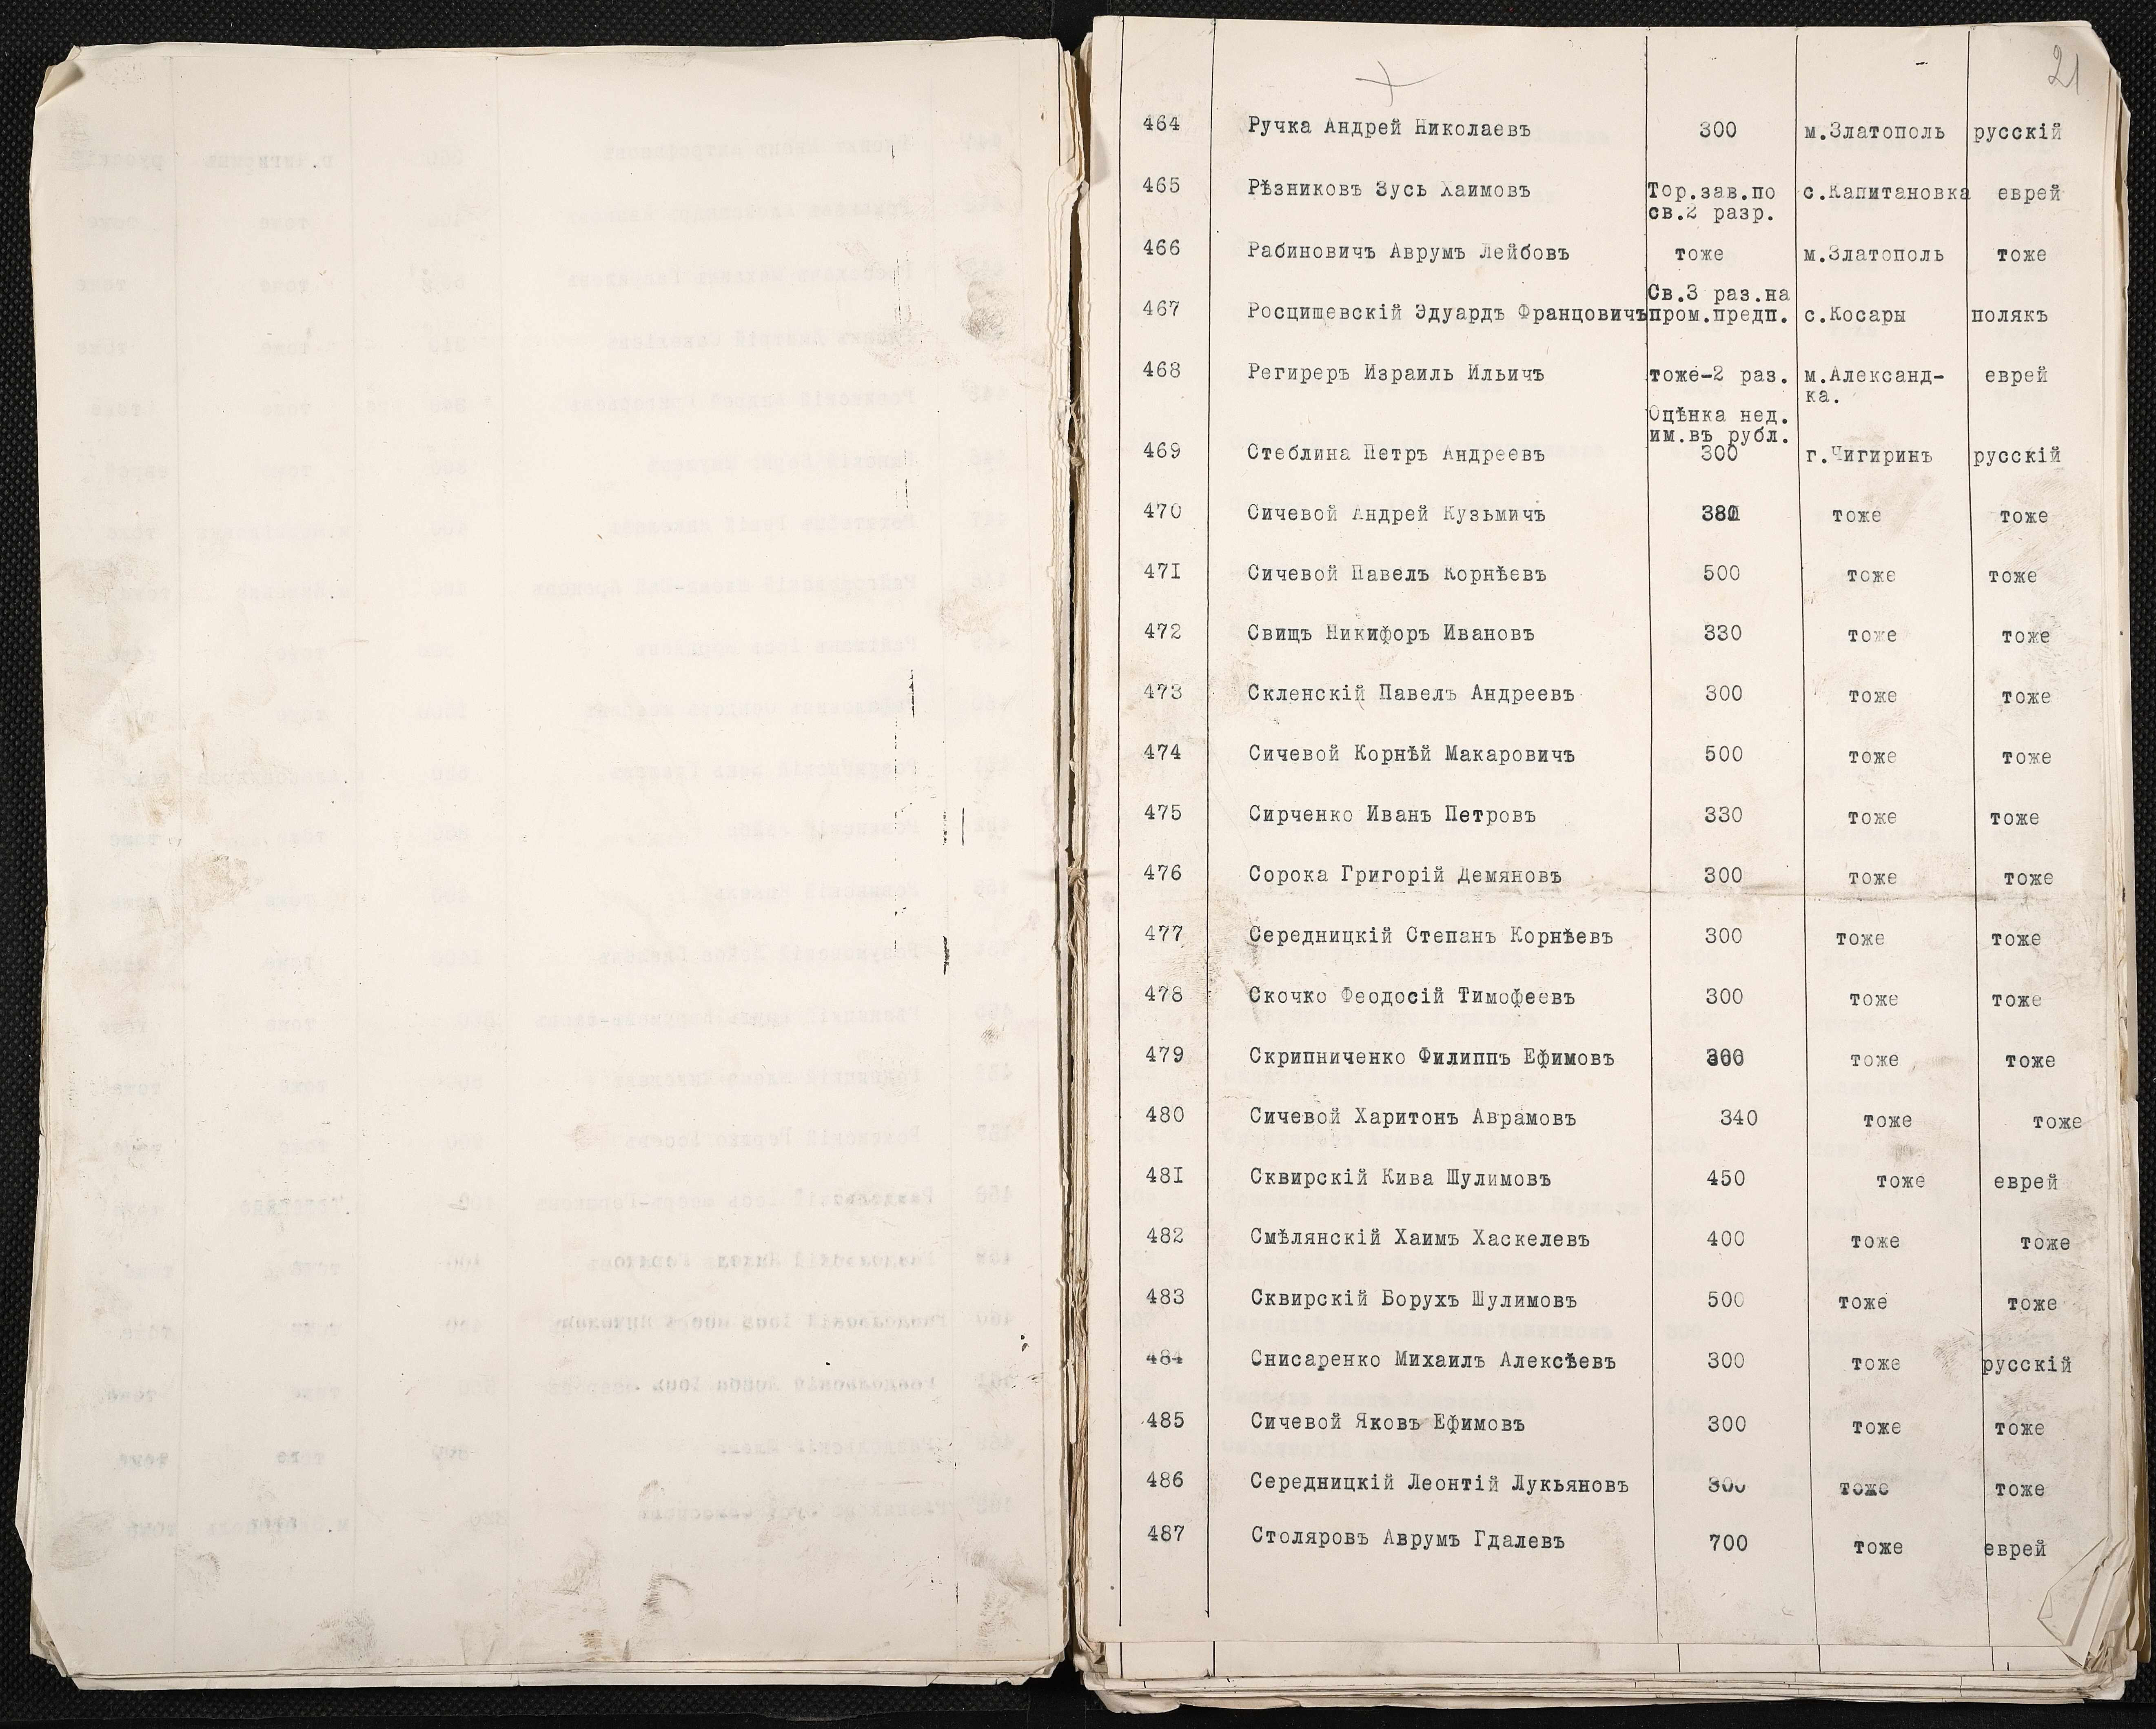 21
464 Ручка Андрей Николаевъ 300 м.Златополь русскій
465 Рѣзниковъ Зусь Хаимовъ Тор.зав.по с.Капитановка еврей
св.2 разр.
466 Рабиновичъ Аврумъ Лейбовъ тоже м.Златополь тоже
Св.3 раз.на
467 Росцишевскій Эдуардъ Францовичъ пром.предп. с.Косары полякъ
468 Региреръ Израиль Ильичъ тоже-2 раз. м.Александ- еврей
ка.
Оцѣнка нед.
им.въ рубл.
469 Стеблина Петръ Андреевъ 300 г.Чигиринъ русскій
470 Сичевой Андрей Кузьмичъ тоже тоже
471 Сичевой Павелъ Корнѣевъ 500 тоже тоже
472 Свищъ Никифоръ Ивановъ 330 тоже тоже
473 Скленскій Павелъ Андреевъ 300 тоже тоже
474 Сичевой Корнѣй Макаровичъ 500 тоже тоже
475 Сирченко Иванъ Петровъ 330 тоже тоже
476 Сорока Григорій Демяновъ 300 тоже тоже
477 Середницкій Степанъ Корнѣевъ 300 тоже тоже
478 Скочко Феодосій Тимофеевъ 300 тоже тоже
479 Скрипниченко Филиппъ Ефимовъ тоже тоже
480 Сичевой Харитонъ Аврамовъ 340 тоже тоже
481 Сквирскій Кива Шулимовъ 450 тоже еврей
482 Смѣлянскій Хаимъ Хаскелевъ 400 тоже тоже
483 Сквирскій Борухъ Шулимовъ 500 тоже тоже
484 Снисаренко Михаилъ Алексѣевъ 300 тоже русскій
485 Сичевой Яковъ Ефимовъ 300 тоже тоже
486 Середницкій Леонтій Лукьяновъ 300 тоже тоже
487 Столяровъ Аврумъ Гдалевъ 700 тоже еврей